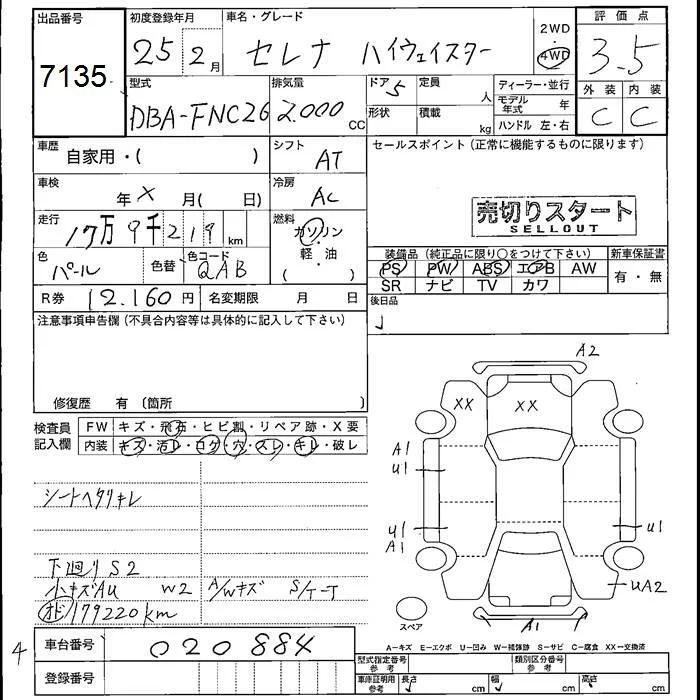 出品番号 初度登録年月 車名・グレード 2WD 評価点
7135 25年2月 セレナ ハイウェイスター 4WD 3.5
型式 排気量 ドア 5 定員 人 ディーラー・並行 外装 内装
DBA-FNC26 2000 CC 形状 積載 kg モデル年式 年 C C
ハンドル 左・右
車歴 自家用・( ) シフト AT セールスポイント(正常に機能するものに限ります)
車検 年 X 月( 日) 冷房 AC
売切りスタート
SELLOUT
走行 17万9千219 km 燃料 ガソリン
軽・油
( )
色 パール 色替 色コード QAB
装備品(純正品に限り○をつけて下さい) 新車保証書
PS PW ABS エアB AW 有・無
SR ナビ TV カワ
R券 12.160円 名変期限 月 日 後日品
注意事項申告欄(不具合内容等は具体的に記入して下さい)
修復歴 有 (箇所 )
検査員記入欄 FW キズ・飛石・ヒビ割・リペア跡・X要
内装 キズ・汚レ・コゲ・穴・スレ・キレ・破レ
シートヘタリキレ
下廻りS2
小キズAU W2 A/Wキズ S/ケーT
オド 179220km
A2
XX XX
A1
U1
U1
A1
U1
UA2
A1
スペア
A=キズ E=エクボ U=凹み W=補修跡 S=サビ C=腐食 XX=交換済
4 車台番号 020884
登録番号
型式指定番号 参考 類別区分番号 参考
車庫証明用 参考 長さ cm 幅 cm 高さ cm